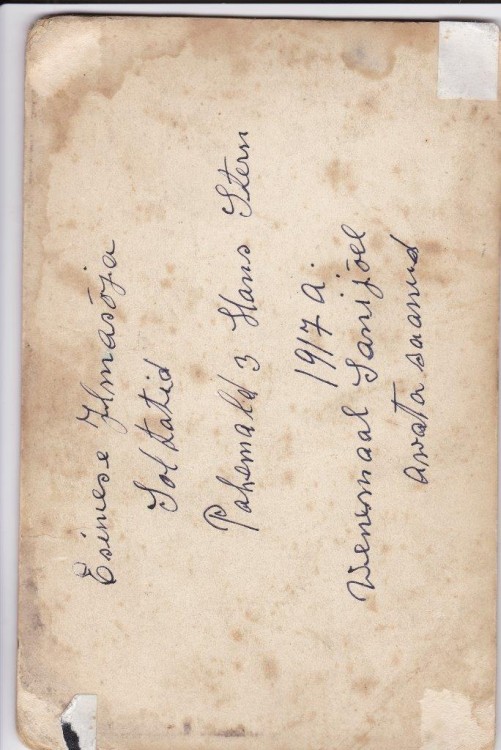 Esimese Ilmasõja
Soltatid
Pahemald 3 Hans Stern
1917 A.
Wenemaal Sanijõel
awata saanud